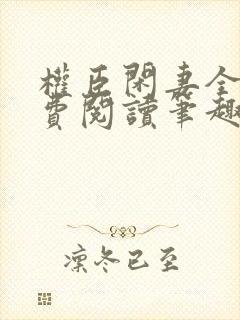 權臣閑妻全
費閱讀筆趣
凜冬已至